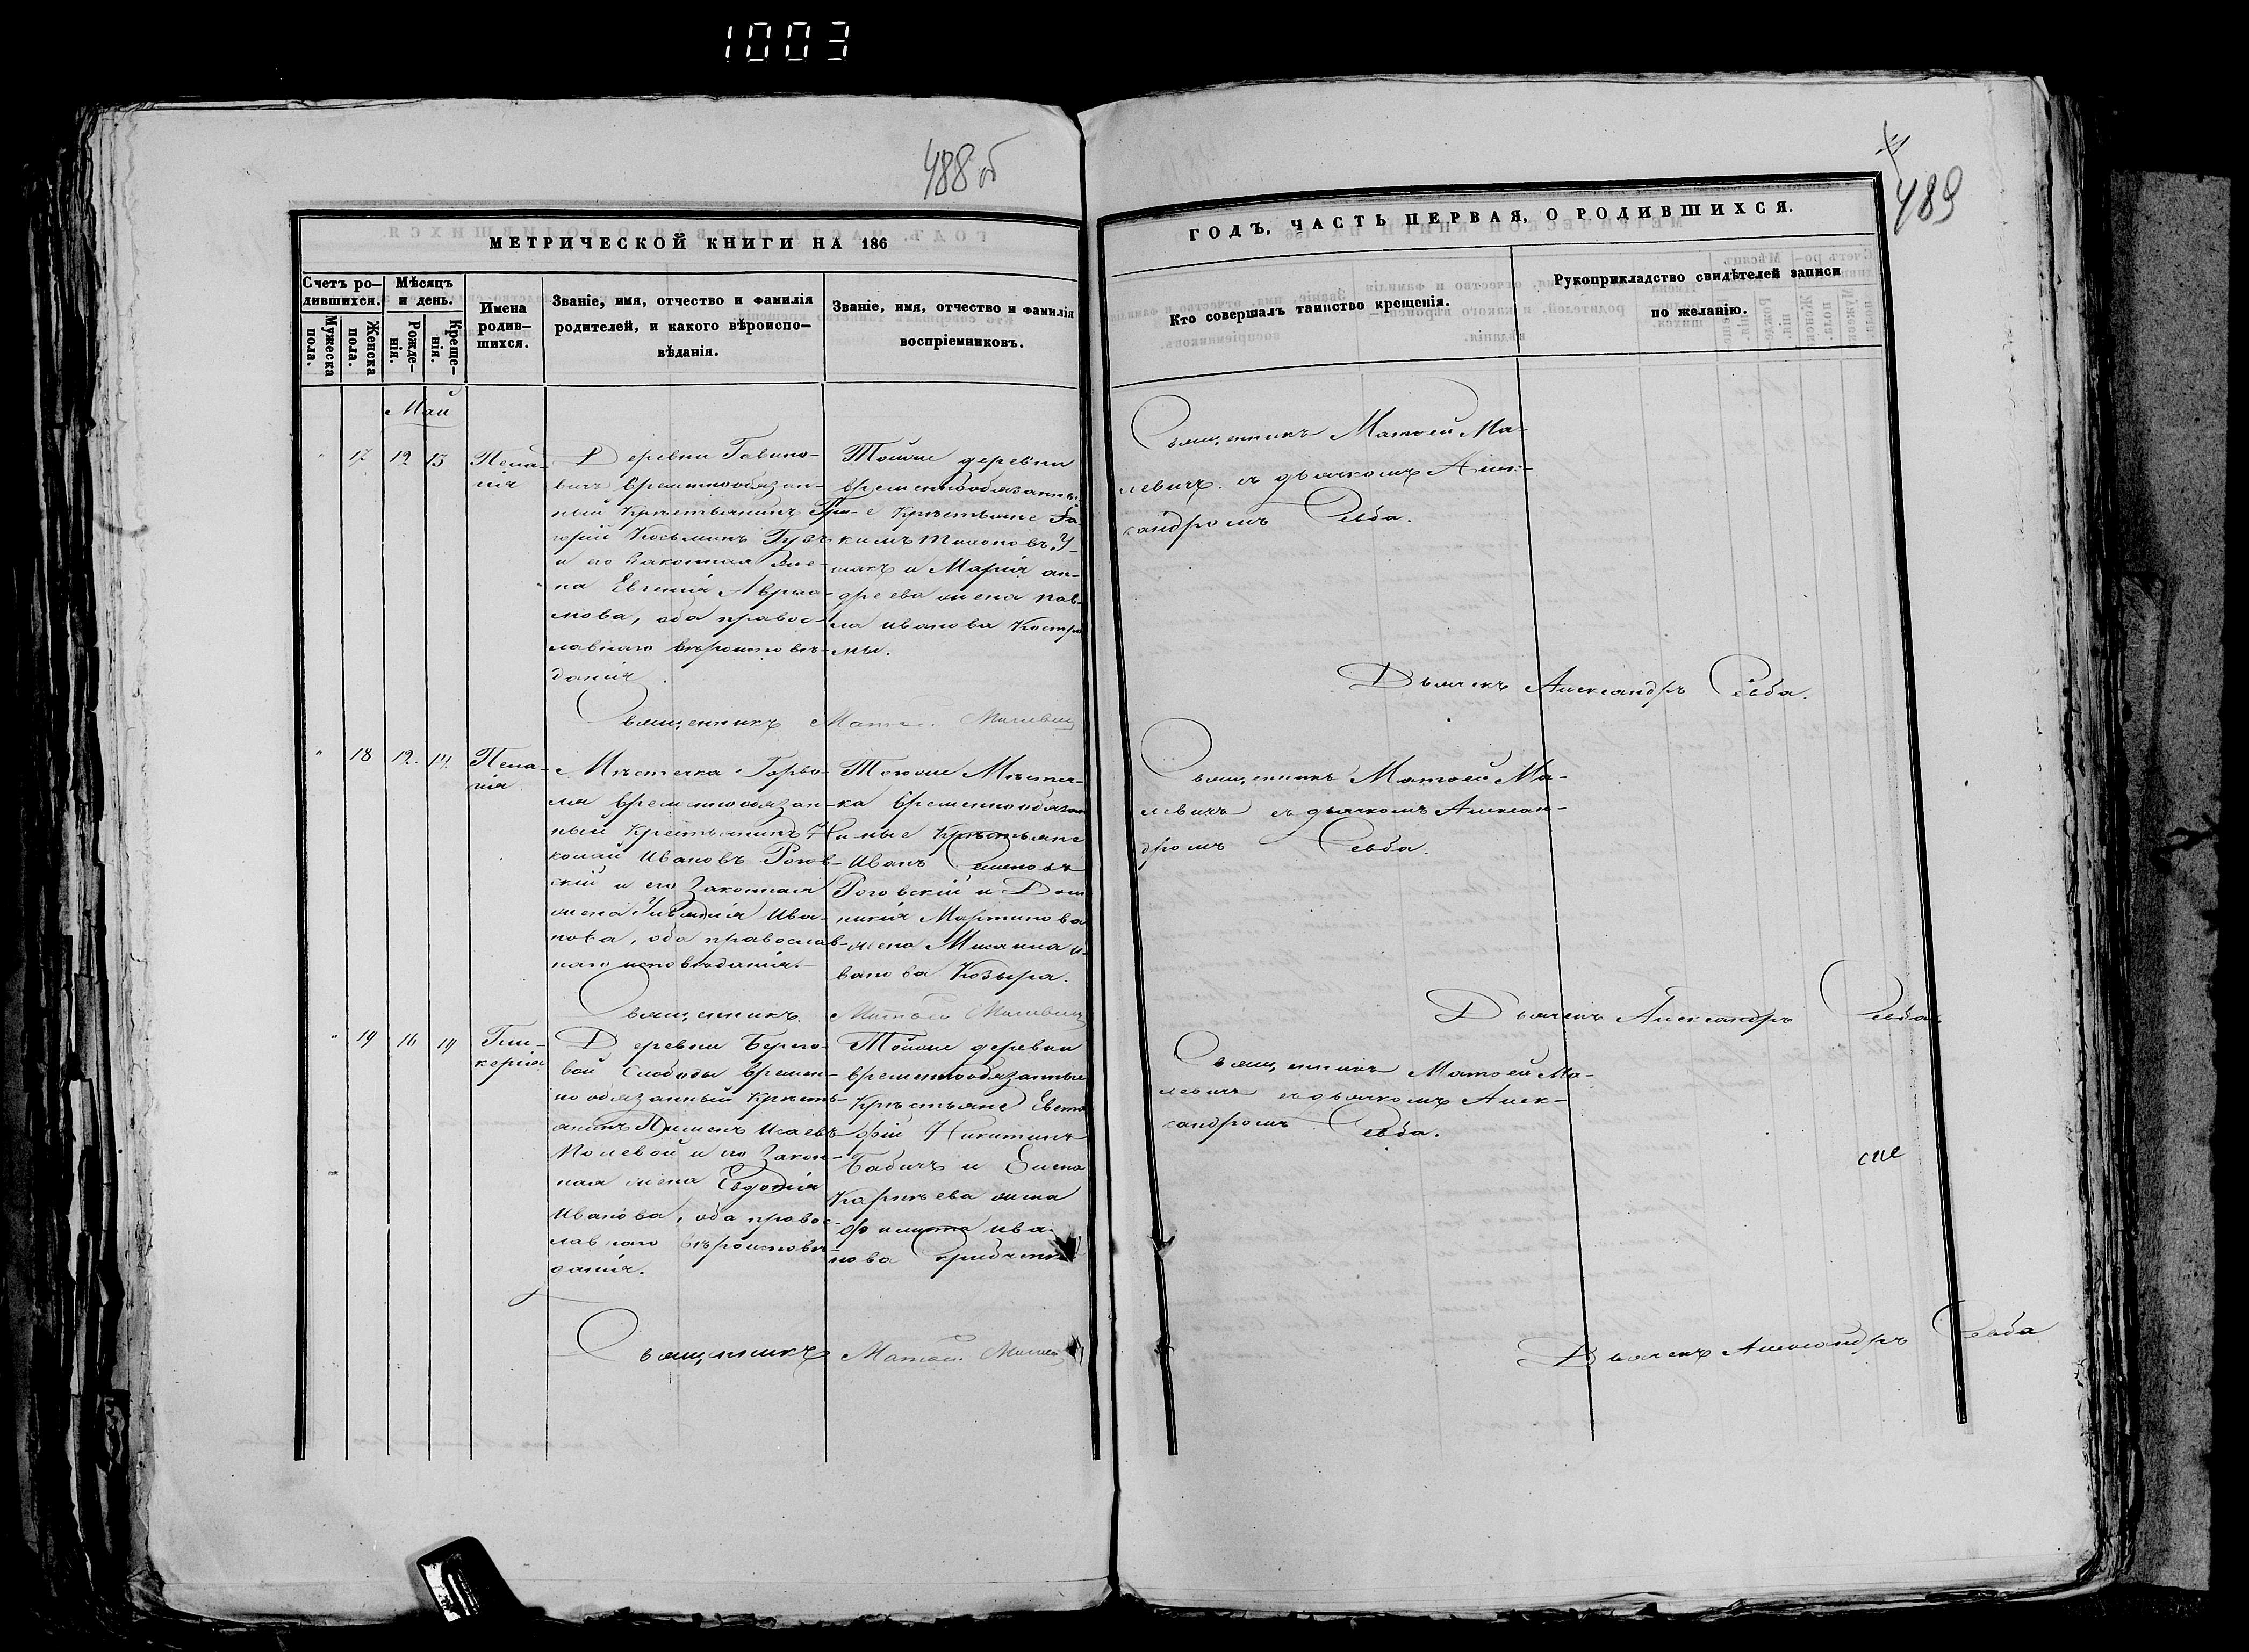 1003
488 об
489
МЕТРИЧЕСКОЙ КНИГИ НА 186
Счетъ ро-
дившихся.
Мужеска
пола.
Женска
пола.
Мѣсяцъ
и день.
Рожде-
нія.
Креще-
нія.
Имена
родив-
шихся.
Званіе, имя, отчество и фамилія
родителей, и какого вѣроиспо-
вѣданія.
Званіе, имя, отчество и фамилія
воспріемниковъ.
Май
17 12 13
Пела-
гія
Деревни
вичъ временнообязан-
ный Крѣстьянинъ Гри-
горій Косьминъ
и его Законная Же-
на Евгенія
мова, оба правос-
лавнаго вѣроисповѣ-
данія.
Тойже деревни
временнообязанны-
е Крѣстьяне
кимъ У-
и Марія Ан-
дреева жена Пав-
ла Иванова Костро
мы.
Священникъ Матѳей Малевич
18 12. 14
Пела-
гія
Мѣстечка Горво-
ля временнообязан-
ный Крѣстьянинъ Ни-
колай Ивановъ Рогов-
скій и его Законная
жена Ива-
нова, оба православ-
наго исповѣданія.
Тогоже Мѣстеч-
ка временнообязан
ные Крѣстьяне
Иванъ Семеновъ
Роговскій и Дом
никія Мартинова
жена Михаила И-
ванова Козыра.
Священникъ Матѳей Малевич
19 16 19
Гли-
керія
Деревни Берего-
вой Слободы времен-
но обязанный Крѣсть-
янинъ Пименъ Исаевъ
Полевой и его Закон-
ная жена Евдокія
Иванова, оба правос-
лавнаго вѣроисповѣ-
данія.
Тойже деревни
временнообязанные
Крѣстьяне Евста
фій Никитинъ
Бабичъ и Елена
жена
Филипа Ива-
нова
Священникъ Матѳей
ГОДЪ, ЧАСТЬ ПЕРВАЯ, О РОДИВШИХСЯ.
Кто совершалъ таинство крещенія.
Рукоприкладство свидѣтелей записи
по желанію.
Священникъ Матѳей Ма-
левичъ съ дьячкомъ Алек-
сандромъ Севба.
Дьячекъ Александръ Севба.
Священникъ Матѳей Ма-
левичъ съ дьячкомъ Алексан-
дромъ Севба.
Дьячекъ Александръ Севба.
Священникъ Матѳей Ма-
левичъ съ дьячкомъ Алек-
сандромъ Севба.
Дьячекъ Александръ Севба